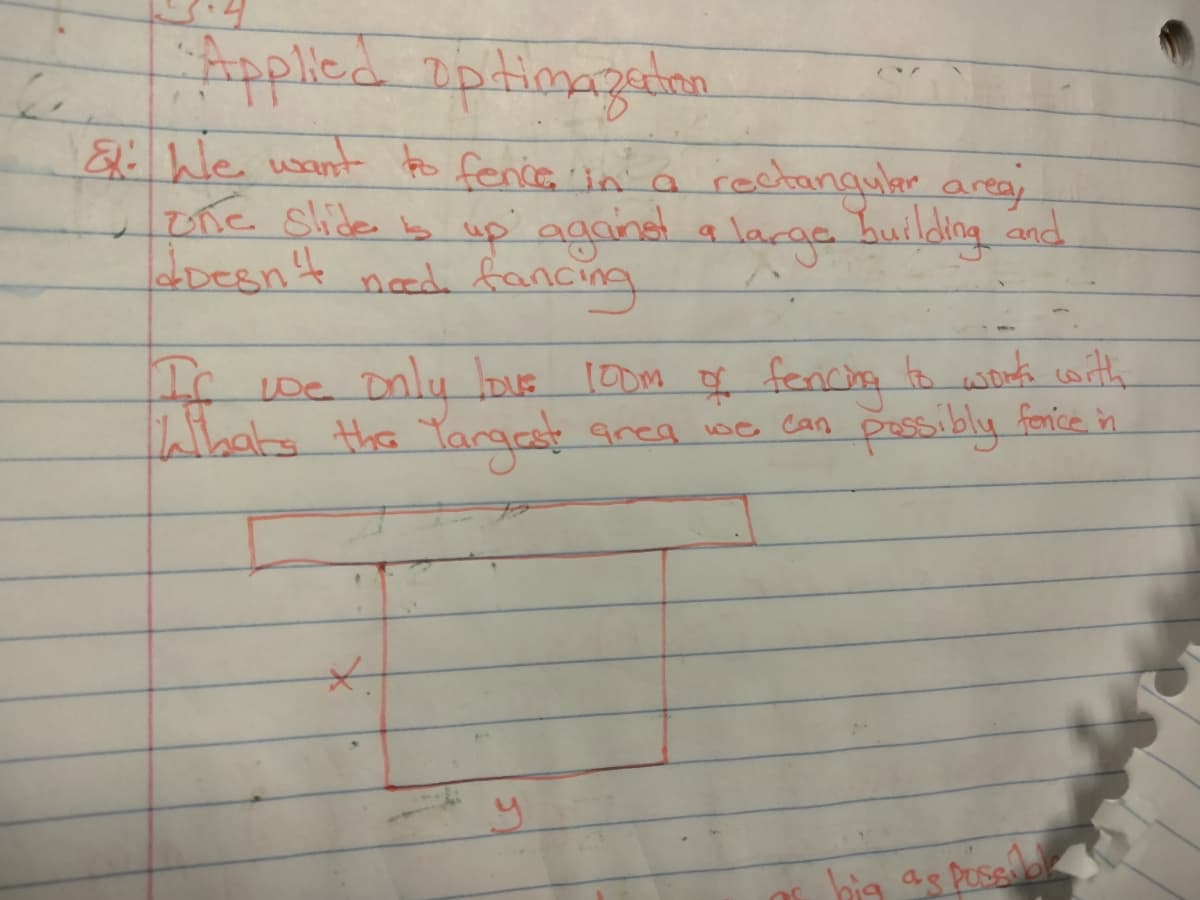 3.4
Applied optimazation
Ex: We want to fence in a rectangular area,
one Slide is up against a large building and
doesn't need fancing
If we only have 100m of fencing to work with
Whats the largest area we can possibly fence in
x
y
as big as possible